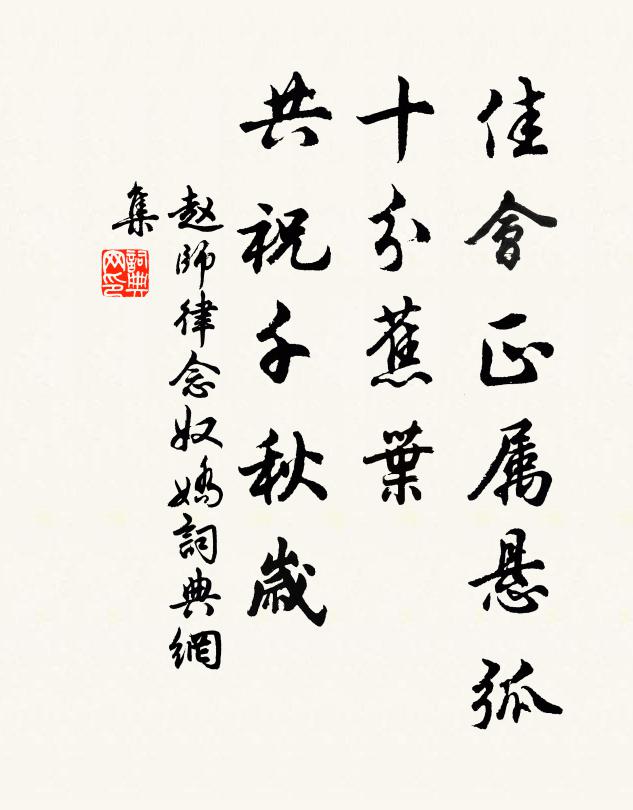 佳會正属悬弧
十分蕉葉
共祝千秋歲
赵師律念奴嬌詞典網
集
詞典
网印